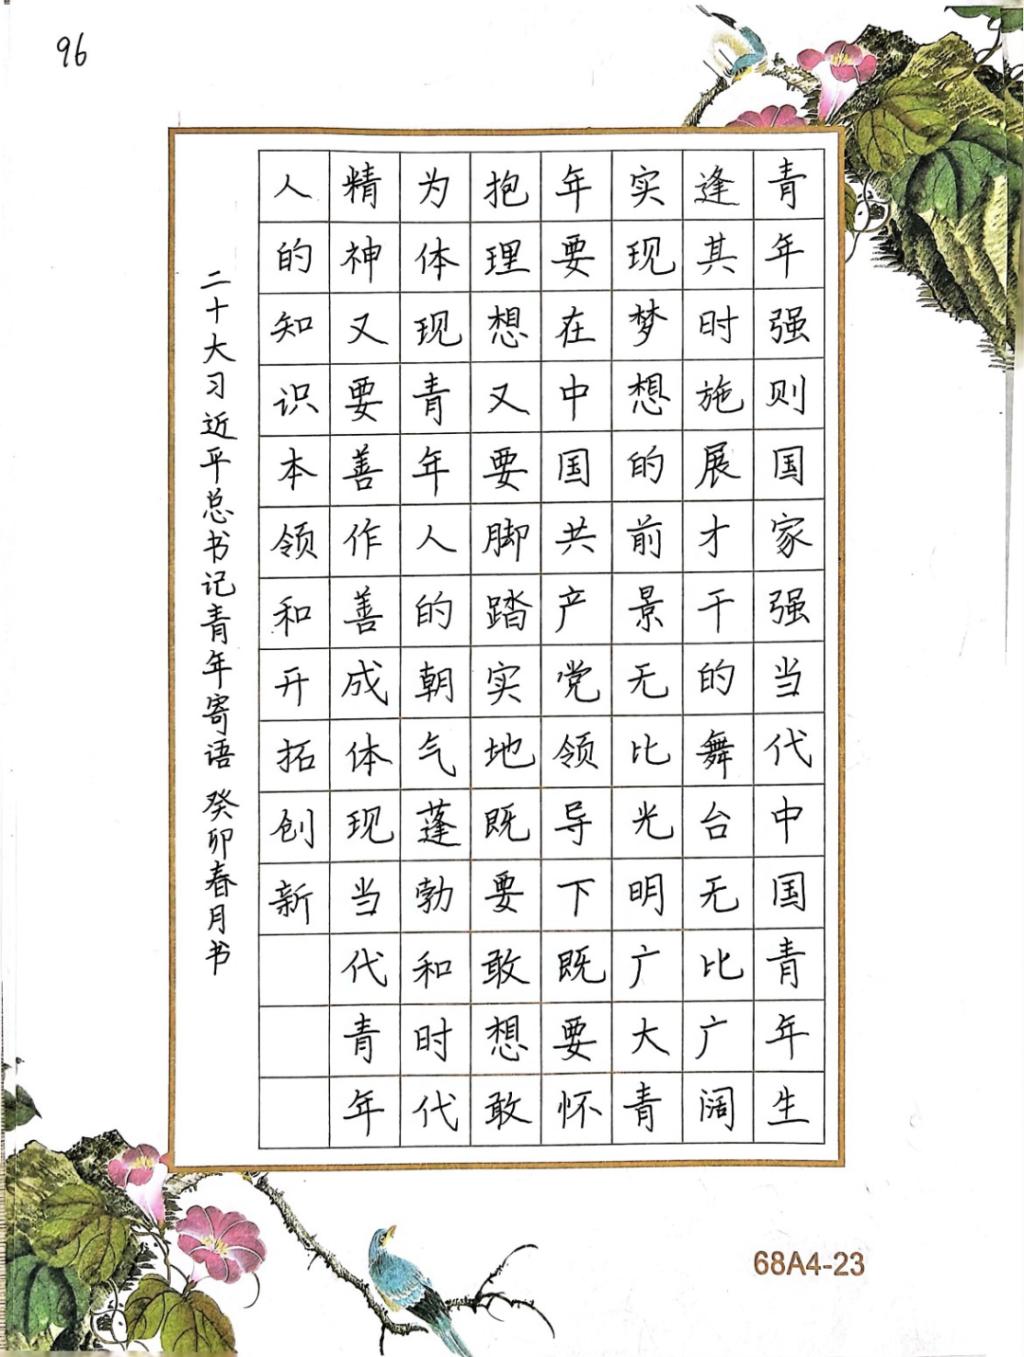 96
青年强则国家强当代中国青年生
逢其时施展才干的舞台无比广阔
实现梦想的前景无比光明广大青
年要在中国共产党领导下既要怀
抱理想又要脚踏实地既要敢想敢
为体现青年人的朝气蓬勃和时代
精神又要善作善成体现当代青年
人的知识本领和开拓创新
二十大习近平总书记青年寄语 癸卯春月书
68A4-23